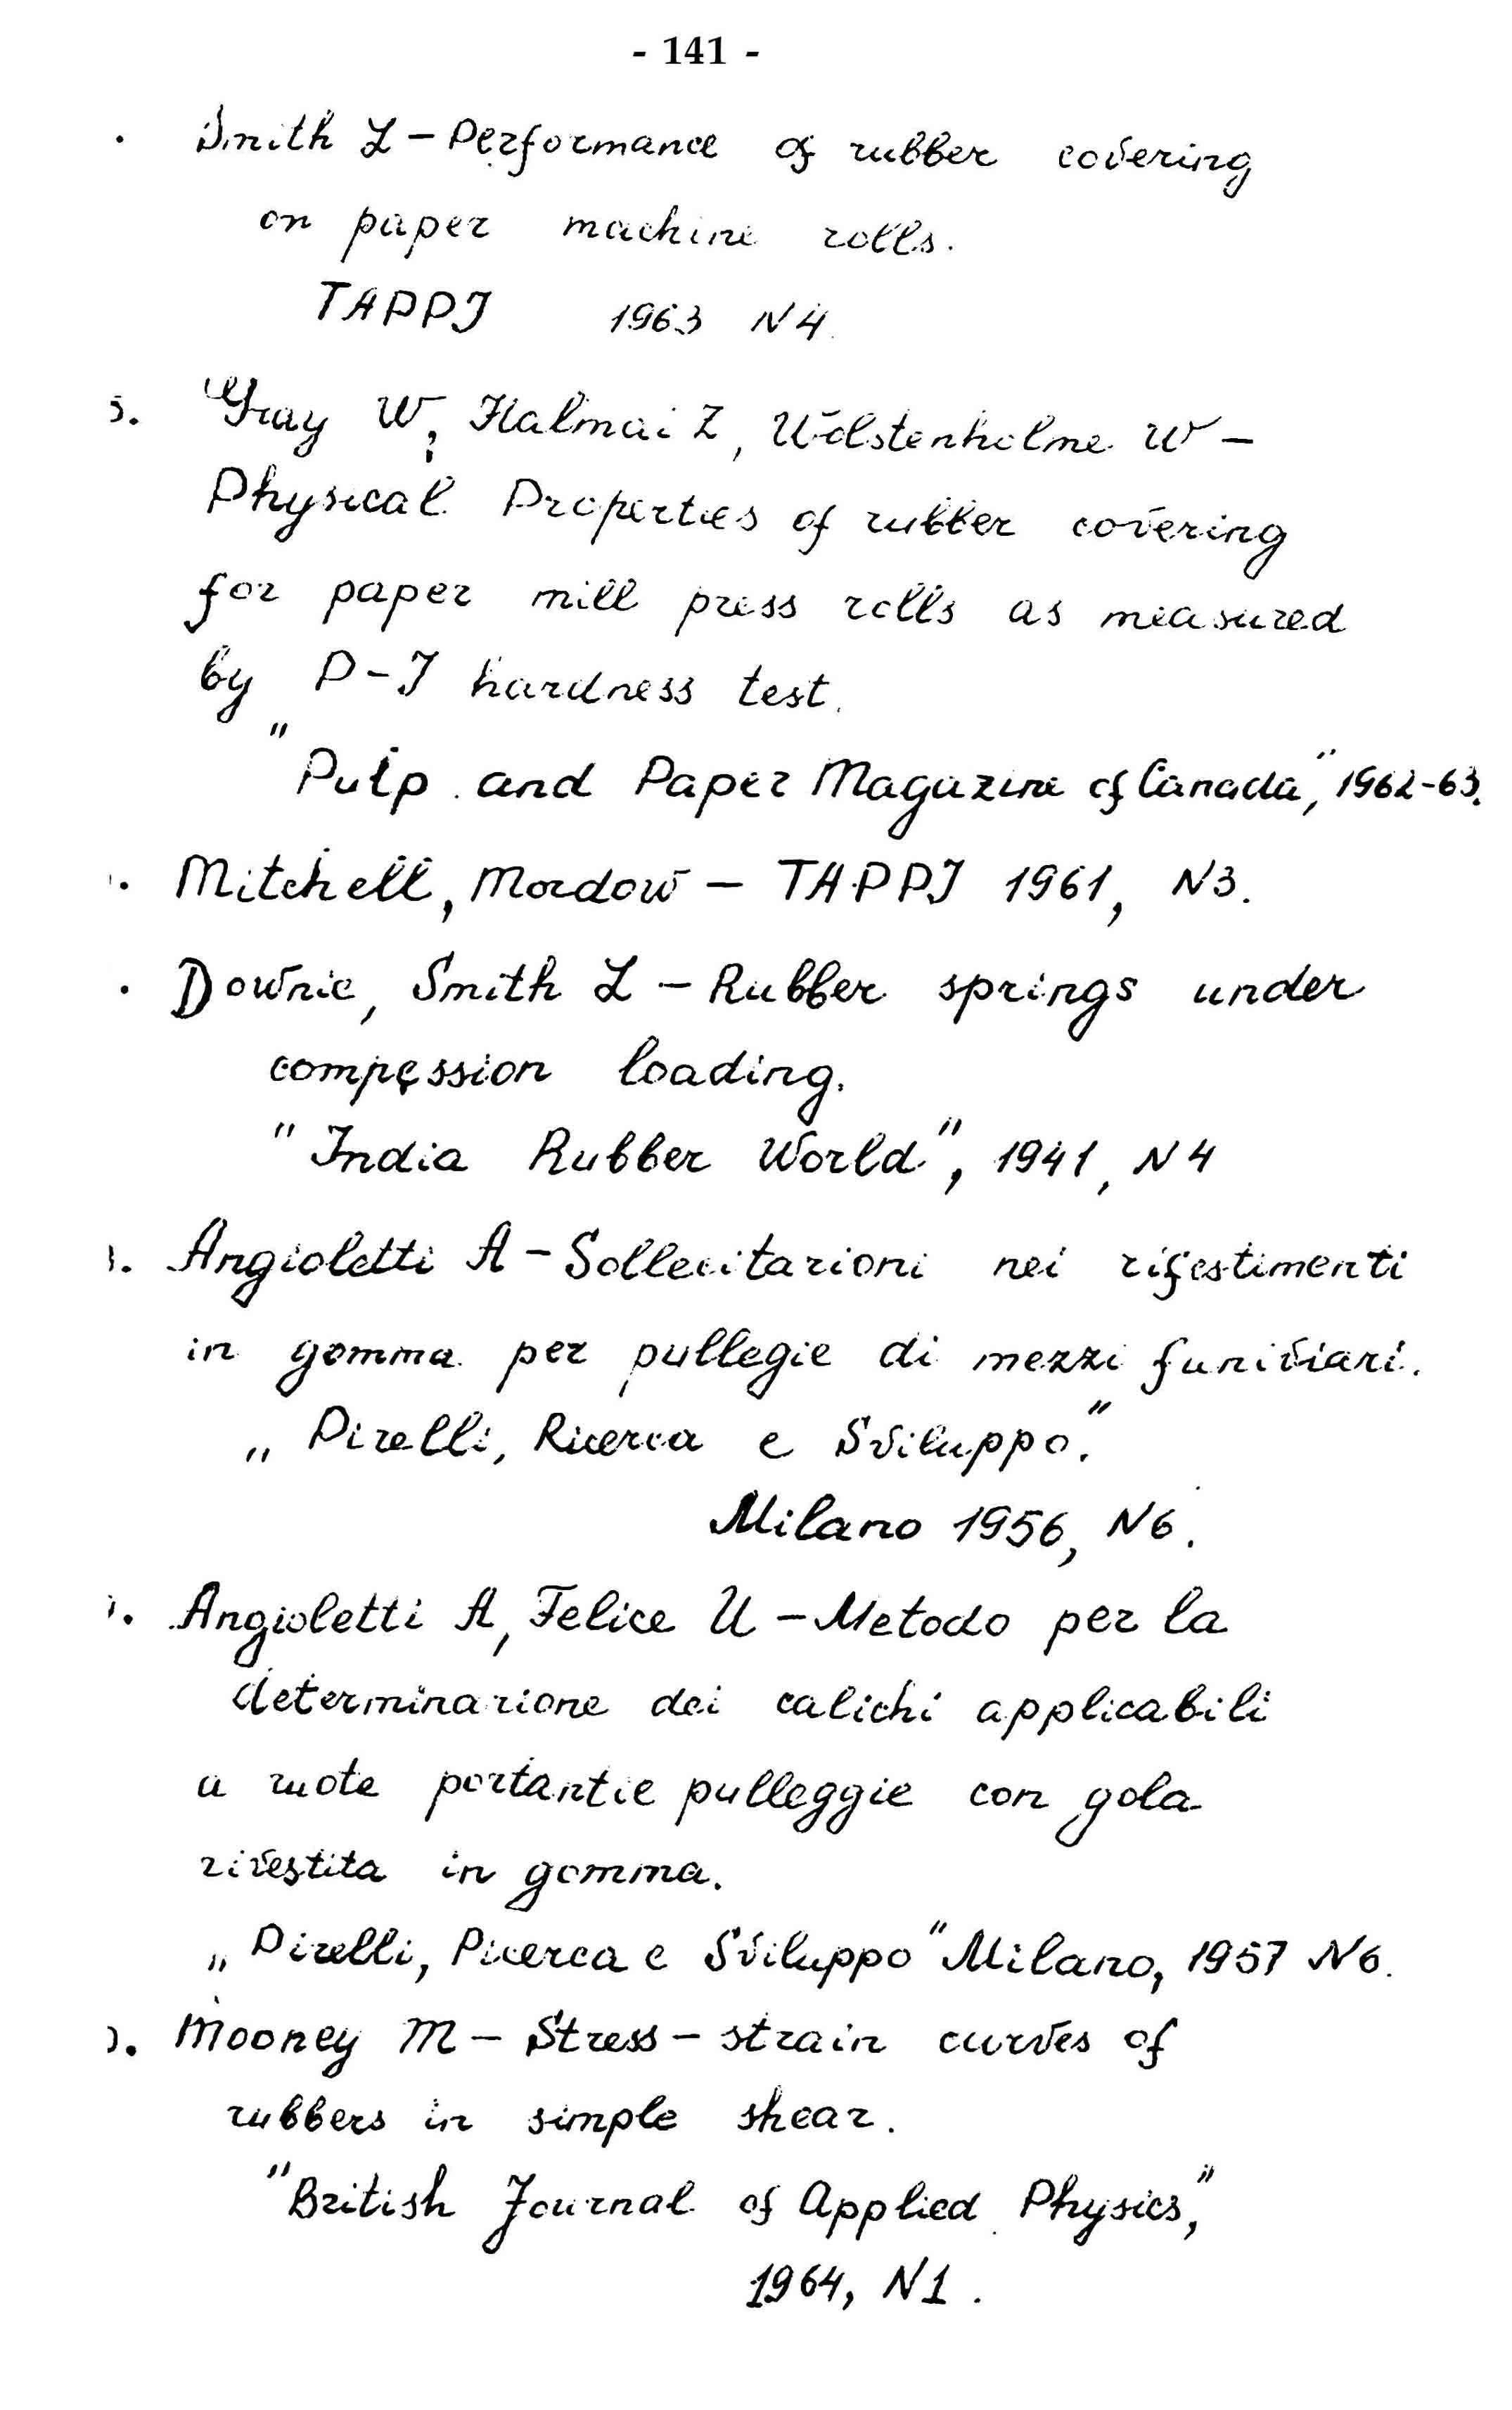 - 141 -
. Smith L - Performance of rubber covering
on paper machine rolls.
TAPPJ 1963 N4.
5. Gray W, Halmai Z, Wolstenholme W -
Physical Properties of rubber covering
for paper mill press rolls as measured
by P-J hardness test.
"Pulp and Paper Magazine of Canada", 1962-63.
. Mitchell, Mordow - TAPPJ 1961, N3.
. Downie, Smith L - Rubber springs under
compession loading.
"India Rubber World", 1941, N4
. Angioletti A - Sollecitazioni nei rifestimenti
in gomma per pullegie di mezzi funiviari.
„Pirelli, Ricerca e Sviluppo."
Milano 1956, N6.
. Angioletti A, Felice U - Metodo per la
determinazione dei calichi applicabili
a ruote portantie pulleggie con gola
rivestita in gomma.
„Pirelli, Picerca e Sviluppo" Milano, 1957 N6.
. Mooney M - Stress - strain curves of
rubbers in simple shear.
"British Journal of Applied Physics,"
1964, N1.